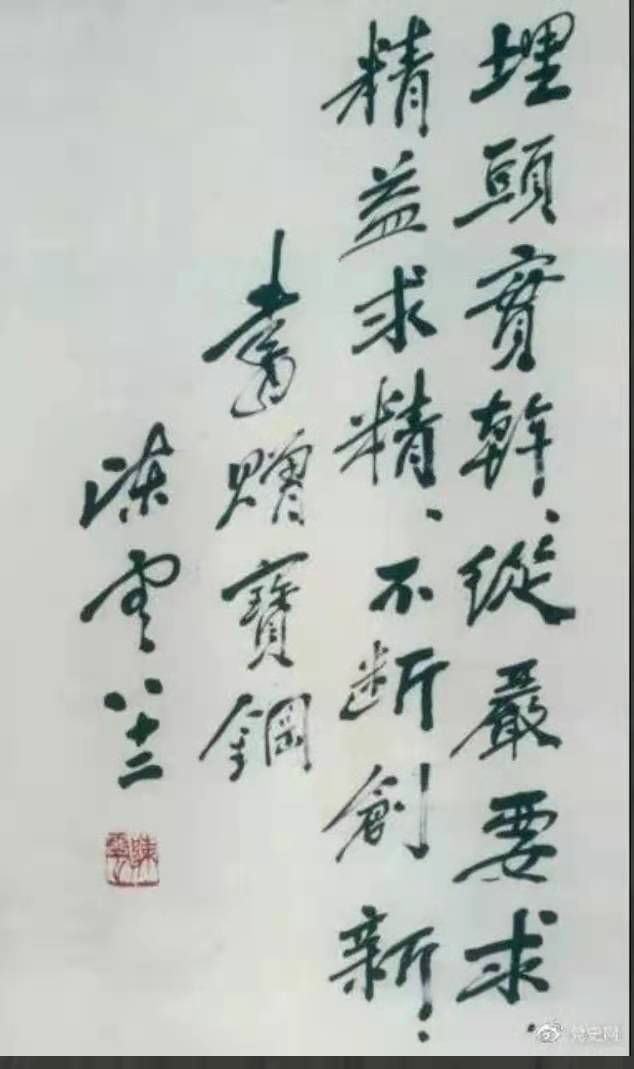 埋頭實幹、從嚴要求.
精益求精、不断創新.
書贈寶鋼
陈雲八十二
陳雲
党史网